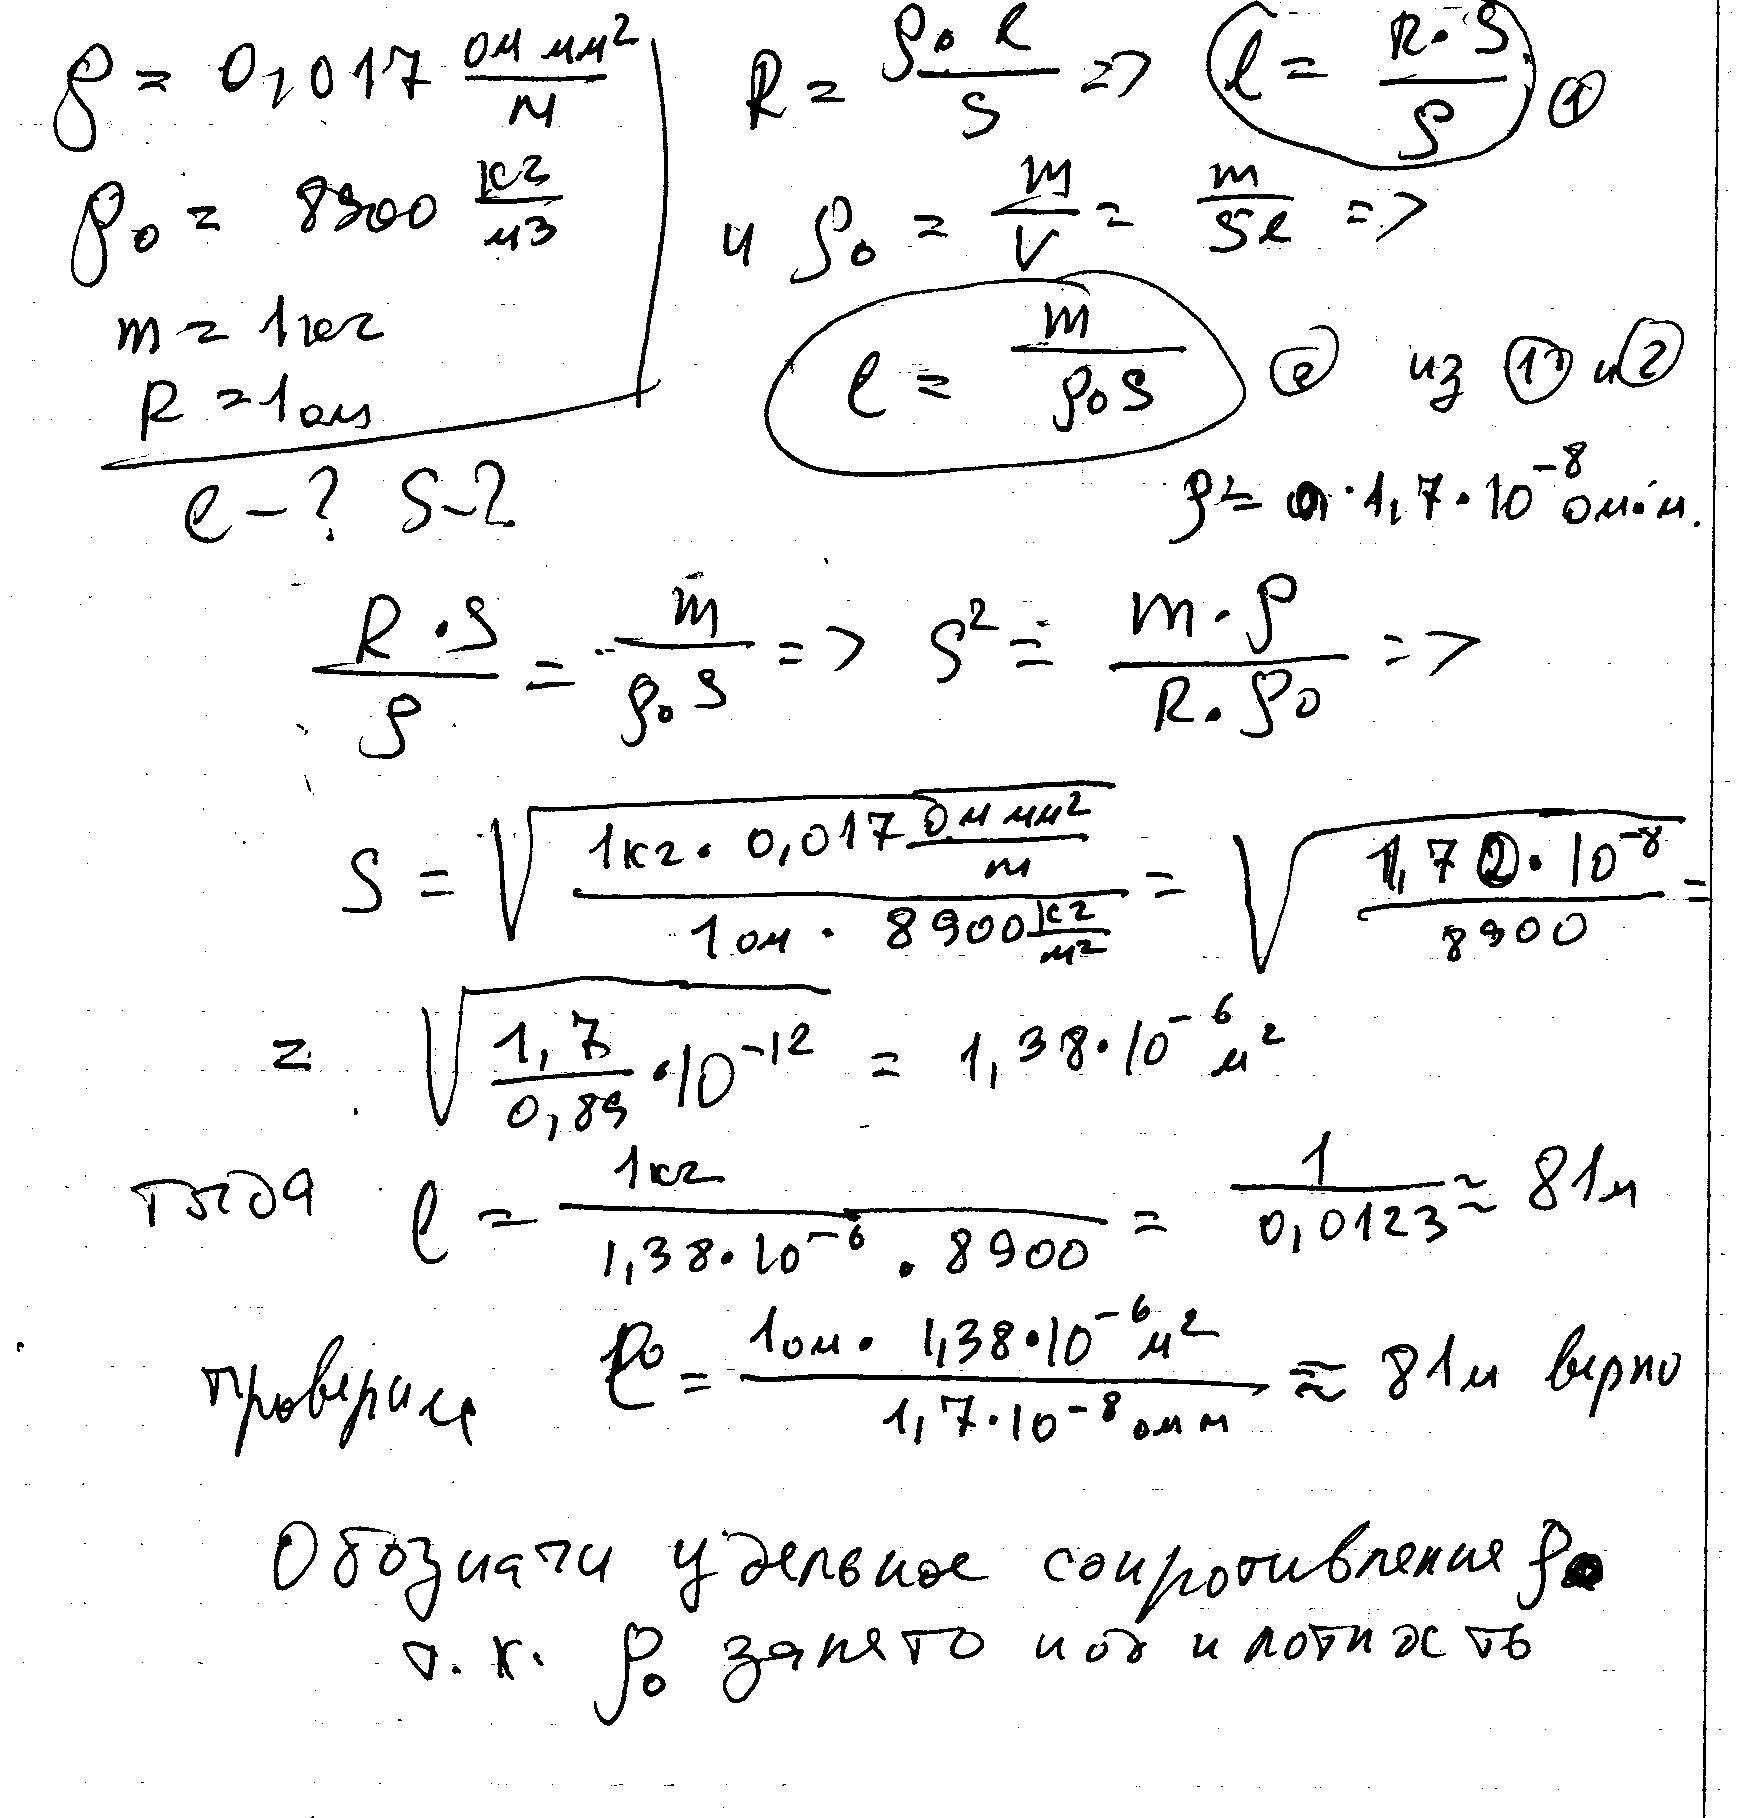 ρ = 0,017 ом мм²/м
ρ₀ = 8900 кг/м3
m = 1кг
R = 1ом
l - ? S - ?
R = ρ·l/S => l = R·S/ρ ①
и ρ₀ = m/V = m/Sl =>
l = m/ρ₀S ② из ① и ②
ρ = 1,7·10⁻⁸ ом·м.
R·S/ρ = m/ρ₀S => S² = m·ρ/R·ρ₀ =>
S = √(1кг·0,017 ом мм²/м / 1ом·8900 кг/м²) = √(1,7·10⁻⁸/8900) =
= √(1,7/0,89·10⁻¹²) = 1,38·10⁻⁶ м²
тогда l = 1кг/1,38·10⁻⁶·8900 = 1/0,0123 ≈ 81м
проверим l = 1ом·1,38·10⁻⁶м²/1,7·10⁻⁸омм ≈ 81м верно
Обозначи удельное сопротивление ρ
т.к. ρ₀ занято под плотность